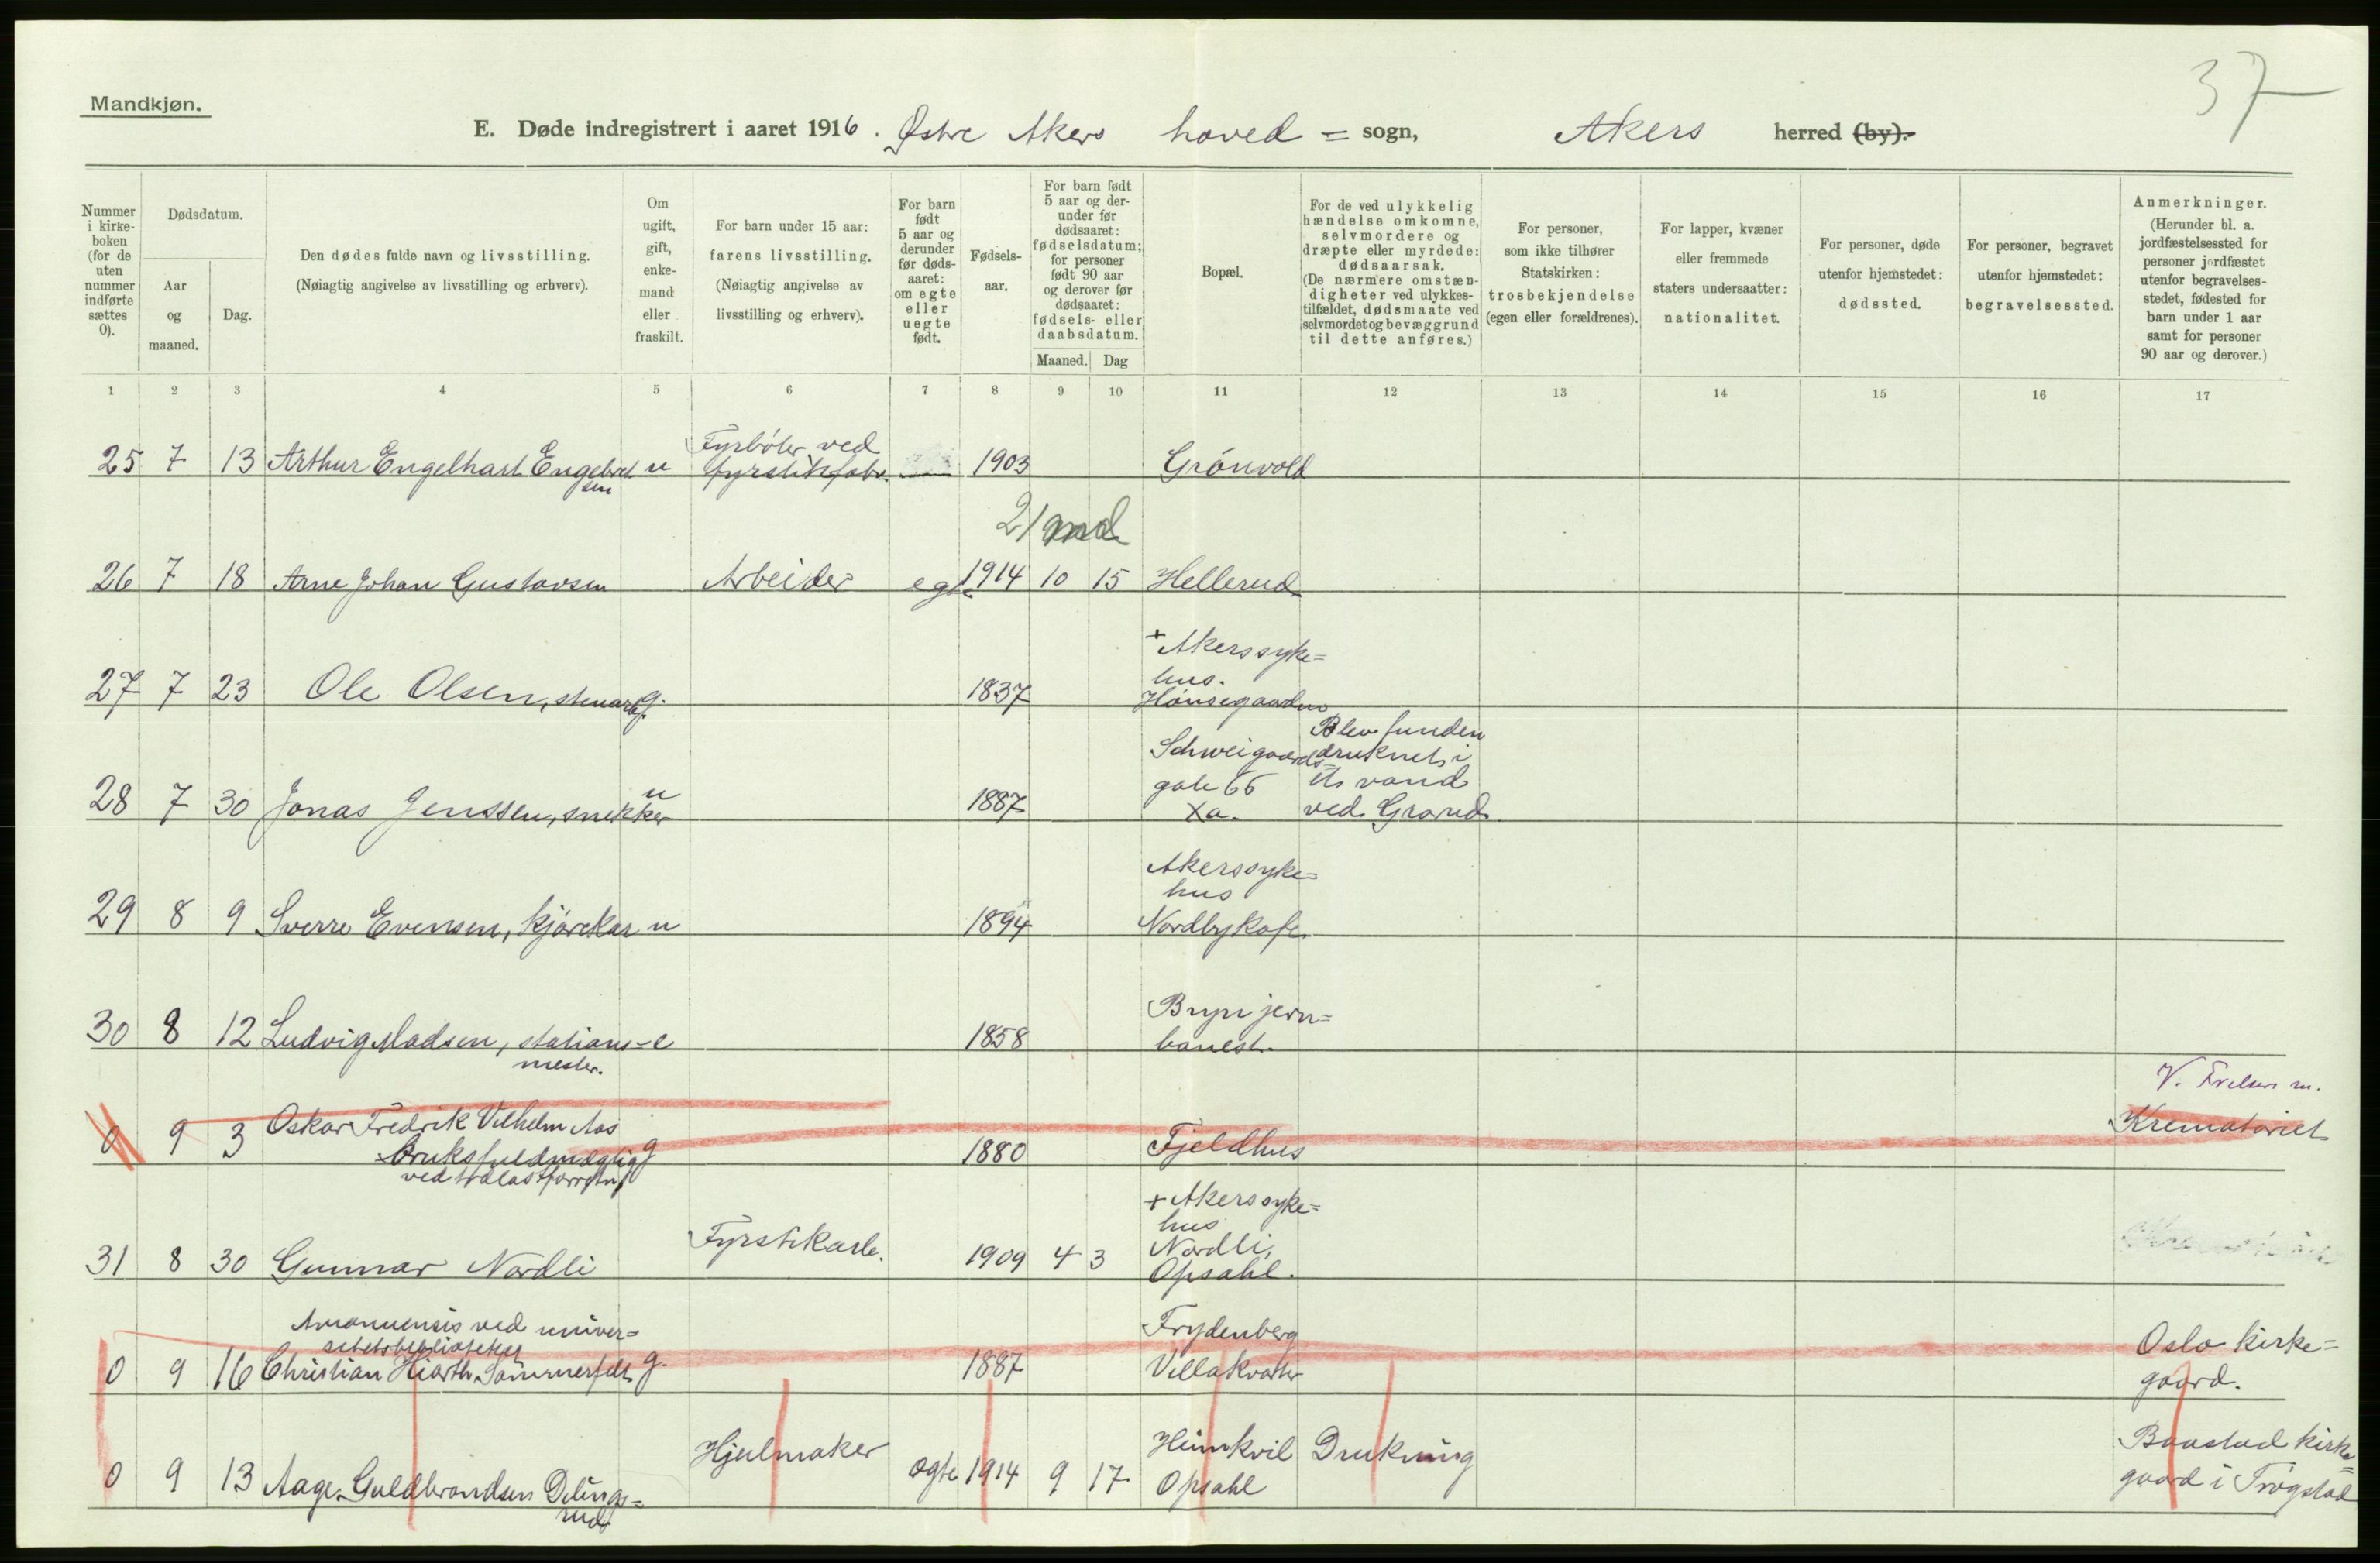 37
Mandkjøn.
E. Døde indregistrert i aaret 1916. Østre Akers hoved = sogn, Akers herred (by).
Nummer i kirke- boken (for de uten nummer indførte sættes 0).
Dødsdatum.
Aar og maaned.
Dag.
Den dødes fulde navn og livsstilling.
(Nøiagtig angivelse av livsstilling og erhverv).
Om ugift, gift, enke- mand eller fraskilt.
For barn under 15 aar: farens livsstilling. (Nøiagtig angivelse av livsstilling og erhverv).
For barn født 5 aar og derunder før døds- aaret: om egte eller uegte født.
Fødsels- aar.
For barn født 5 aar og der- under før dødsaaret: fødselsdatum; for personer født 90 aar og derover før dødsaaret: fødsels- eller daabsdatum.
Maaned. Dag
Bopæl.
For de ved ulykkelig hændelse omkomne, selvmordere og dræpte eller myrdede: dødsaarsak. (De nærmere omstæn- digheter ved ulykkes- tilfældet, dødsmaate ved selvmordet og bevæggrund til dette anføres.)
For personer, som ikke tilhører Statskirken: trosbekjendelse (egen eller forældrenes).
For lapper, kvæner eller fremmede staters undersaatter: nationalitet.
For personer, døde utenfor hjemstedet: dødssted.
For personer, begravet utenfor hjemstedet: begravelsessted.
Anmerkninger. (Herunder bl. a. jordfæstelsessted for personer jordfæstet utenfor begravelses- stedet, fødested for barn under 1 aar samt for personer 90 aar og derover.)
1 2 3 4 5 6 7 8 9 10 11 12 13 14 15 16 17
Fyrbøter ved
25 7 13 Arthur Engelhart Engebret u fyrstikfabr. 1903 Grønvold
sen
21 md
26 7 18 Arne Johan Gustavsen Arbeider egte 1914 10 15 Hellerud
+ Akerssyke=
hus.
27 7 23 Ole Olsen, stenarb. g. 1837 Hønsegaarden
Blev funden
Schweigaards= druknet i
gate 66 et vand
28 7 30 Jonas Jenssen, snekker u 1887 Xa. ved Grorud
Akerssyke=
hus
29 8 9 Sverre Evensen, kjørekar u 1894 Nordbykafe
Bryn jern=
30 8 12 Ludvig Madsen, stations- e 1858 banest.
mester.
V. Frelsers m.
Oskar Fredrik Vilhelm Aas Krematoriet
0 9 3 Bruksfuldmægtig g 1880 Fjeldhus
ved
+ Akerssyke=
hus
Fyrstikarb. Nordli,
31 8 30 Gunnar Nordli 1909 4 3 Opsahl.
Amanuensis ved univer= Frydenberg
sitetsbiblioteket Oslo kirke=
0 9 16 Christian Hiorth Sømmerfelt g. 1887 Villakvarter gaard.
Hjulmaker Heimkvil Drukning Baastad kirke=
0 9 13 Aage Guldbrandsen Delings= egte 1914 9 17 Opsahl gaard i Trøgstad
rud